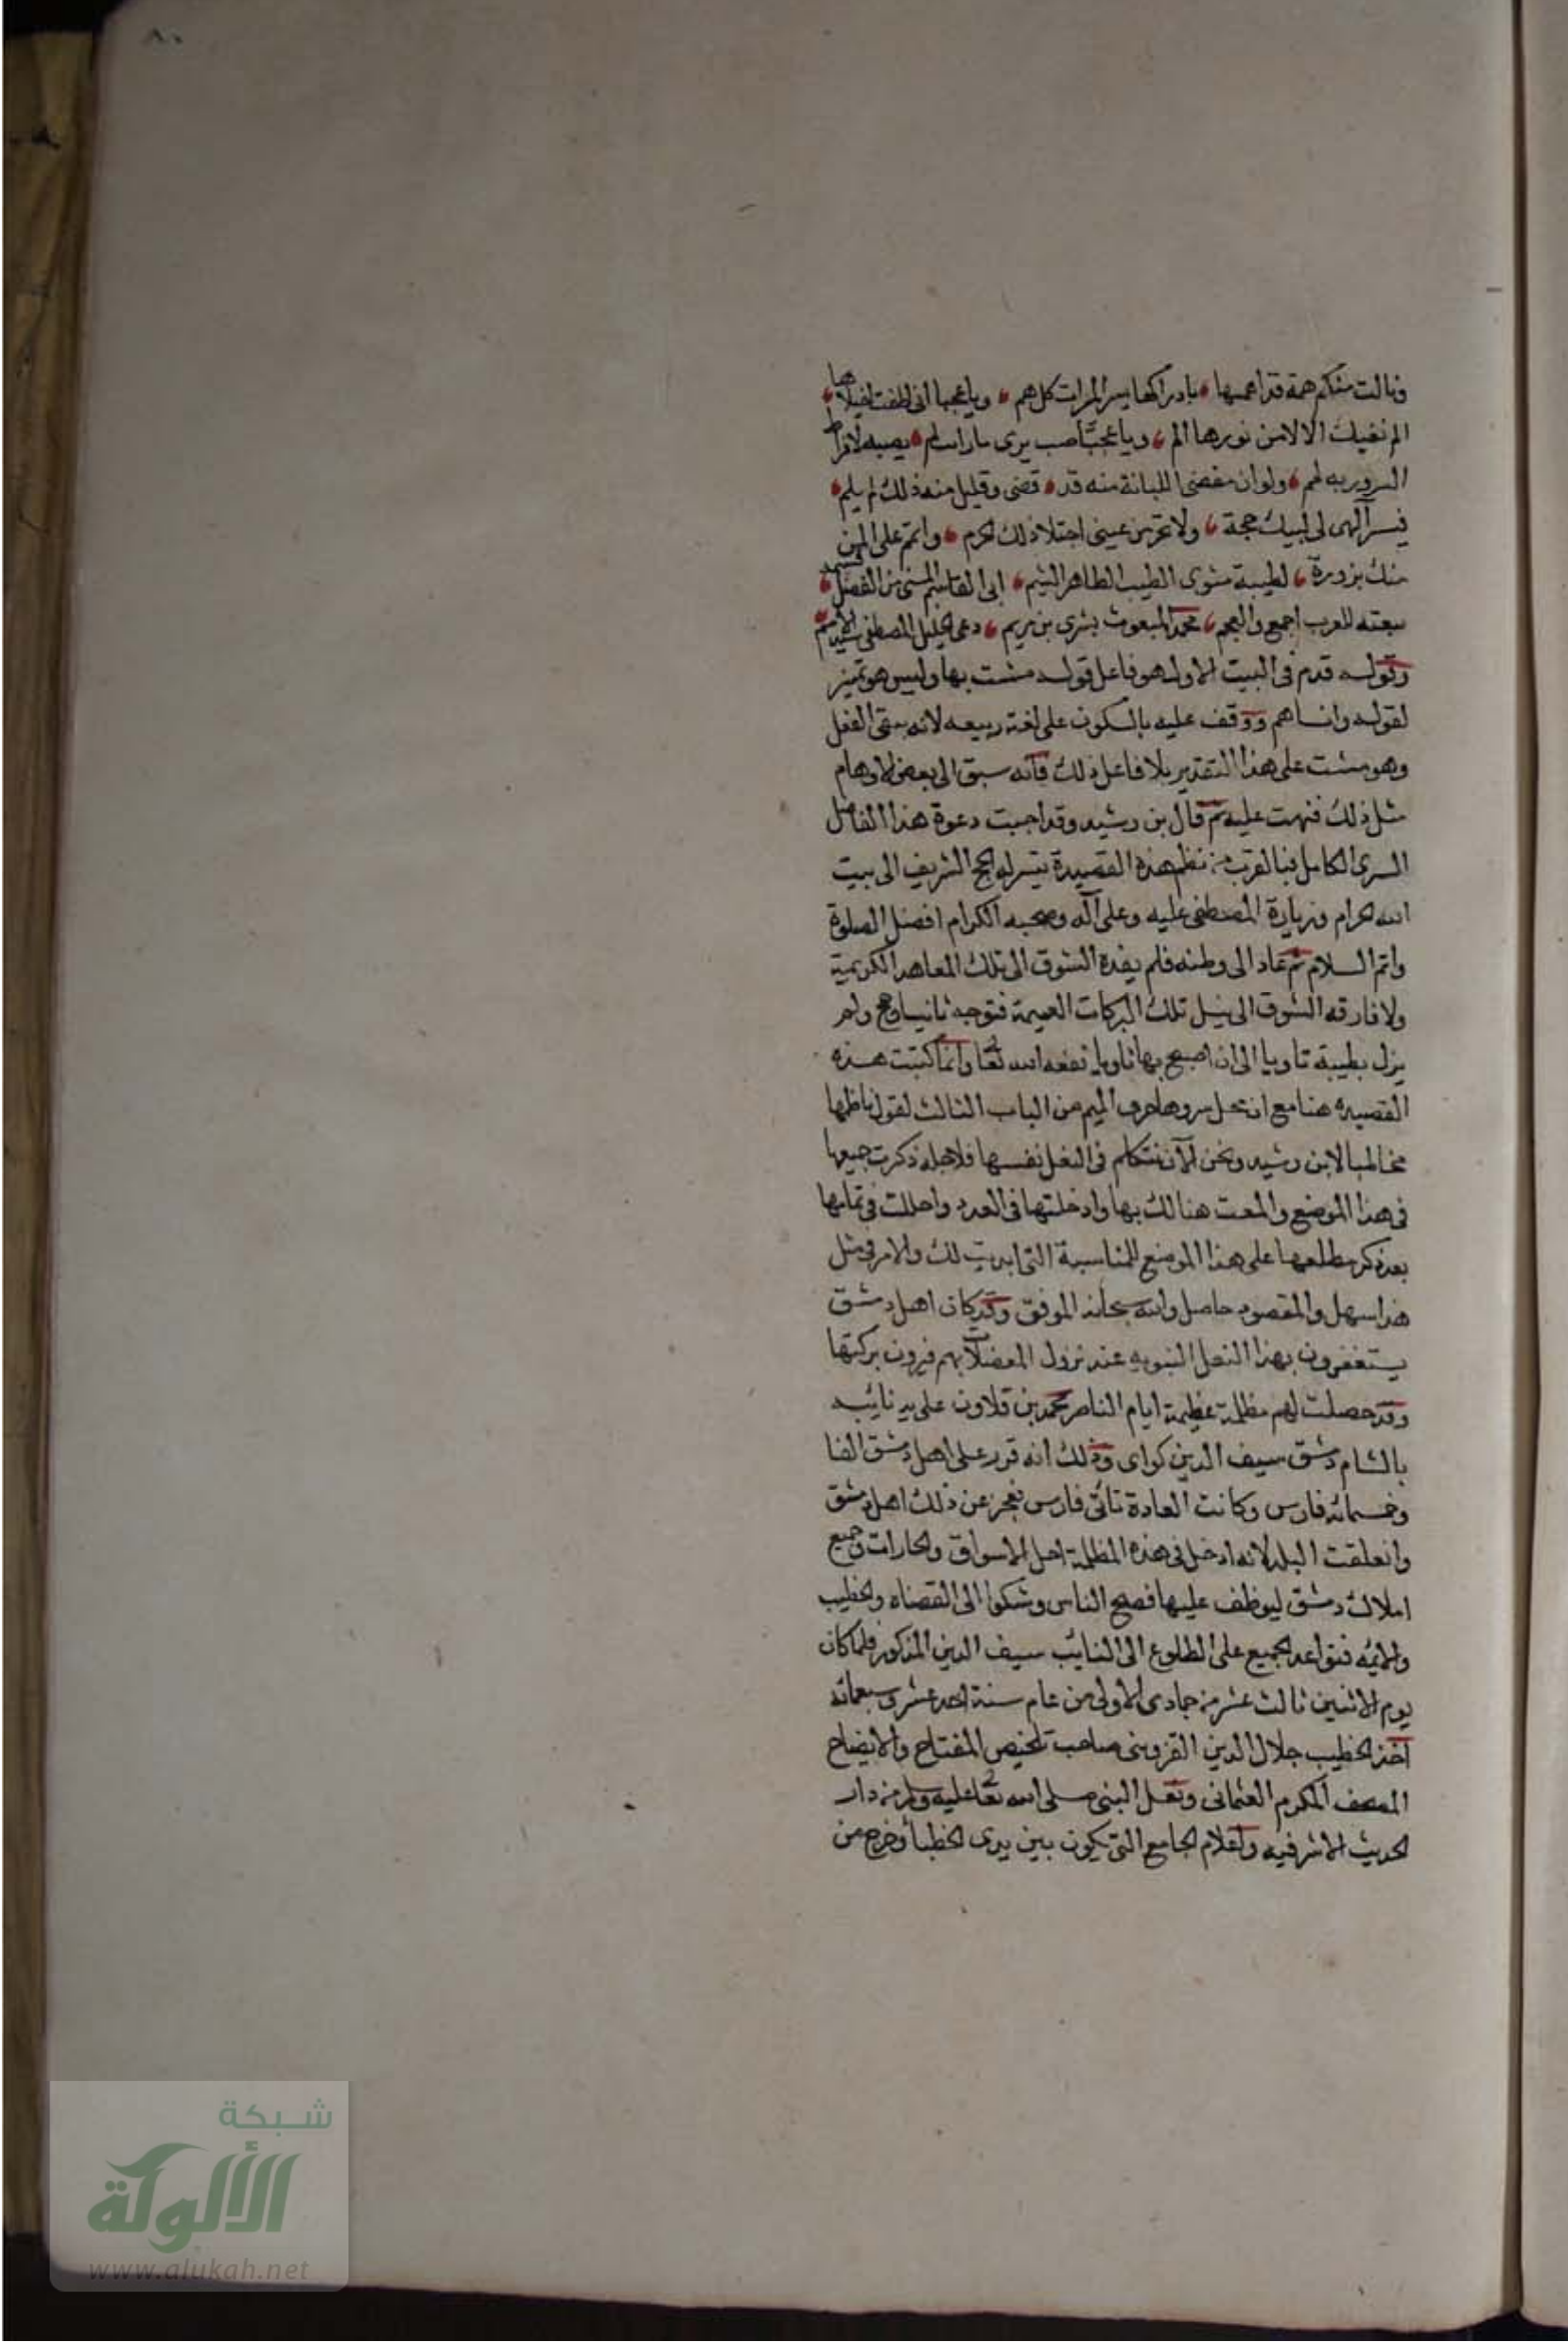 ونالت منكم همة قد اهمها بادراكها يسر المرات كل هم ويا عجبا انى اطفت لفيلاها
الم نفيك الالا من نورها الم ويا عجبا صب يرى دار اسلم يصبه لافراط
السرور به لمم ولو ان مقضى اللبانة منه قد قضى وقليل منه ذلك لم يلم
فيسر آلهى لى لبيك حجة ولا تحرمن عينى اجتلا ذلك الحرم واتمم على المن
منك بزورة لطيبة مثوى الطيب الطاهر الشيم ابى القاسم المسنى من الفضل قسمه
ببعثه للعرب اجمع والعجم محمد المبعوث بشرى بن مريم دعى الخليل المصطفى سيد الامم
وقوله قدم فى البيت الاول هو فاعل قوله مشت بها وليس هو تمييز
لقوله وانساهم ووقف عليه بالسكون على لغة ربيعه لانه يبقى الفعل
وهو مشت على هذا التقدير بلا فاعل ذلك فانه سبق الى بعض الاوهام
مثل ذلك فنبهت عليه ثم قال بن رشيد وقد اجيبت دعوة هذا الفاضل
السرى الكامل فبالقرب من نظم هذه القصيدة تيسر له الحج الشريف الى بيت
الله الحرام وزيارة المصطفى عليه وعلى آله وصحبه الكرام افضل الصلوة
واتم السلام ثم عاد الى وطنه فلم يفده الشوق الى تلك المعاهد الكريمة
ولا فارقه الشوق الى نيل تلك البركات العميمة فتوجه ثانيا وحج ولم
يزل بطيبة تاويا الى ان اصبح بها ثاويا نفعه الله تعا وانما كتبت هذه
القصيده هنا مع ان محل سردها حرف الميم من الباب الثالث لقول ناظمها
مخاطبا لابن رشيد ونحن الآن نتكلم فى النعل نفسها فلاجله ذكرت جميعها
فى هذا الموضع والمعت هنالك بها وادخلتها فى العدد واحللت فى تمامها
بعد ذكر مطلعها على هذا الموضع للمناسبة التى ابديت لك والامر فى مثل
هذا سهل والمقصود حاصل والله سبحانه الموفق وقد كان اهل دمشق
يستغفرون بهذا النعل النبويه عند نزول المعضلات بهم فيرون بركتها
وقد حصلت لهم مظلمة عظيمة ايام الناصر محمد بن قلاون على يد نائبه
بالشام دمشق سيف الدين كراى وذلك انه قرر على اهل دمشق الفا
وخمسمائه فارس وكانت العادة تاتى فارس فعجز عن ذلك اهل دمشق
وانعلقت البلد لانه ادخل فى هذه المظلمة اهل الاسواق والحارات وجميع
املاك دمشق ليوظف عليها فصبح الناس وشكوا الى القضاه والخطيب
والائمه فتواعد الجميع على الطلوع الى النايب سيف الدين المذكور فلما كان
يوم الاثنين ثالث عشر من جمادى الاولى من عام سنة احد عشر وسبعمائه
اخذ الخطيب جلال الدين القزوينى صاحب تلخيص المفتاح والايضاح
المصحف المكرم العثمانى ونعل النبى صلى الله تعا عليه وسلم من دار
الحديث الاشرفيه واعلام الجامع التى تكون بين يدى الخطبا وخرج من
شبكة
الألوكة
www.alukah.net